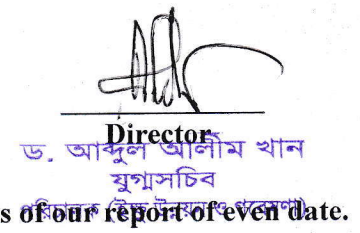 Director
ড. আব্দুল আলীম খান
যুগ্মসচিব
পরিচালক (ইক্ষু উন্নয়ন ও গবেষণা)
s of our report of even date.